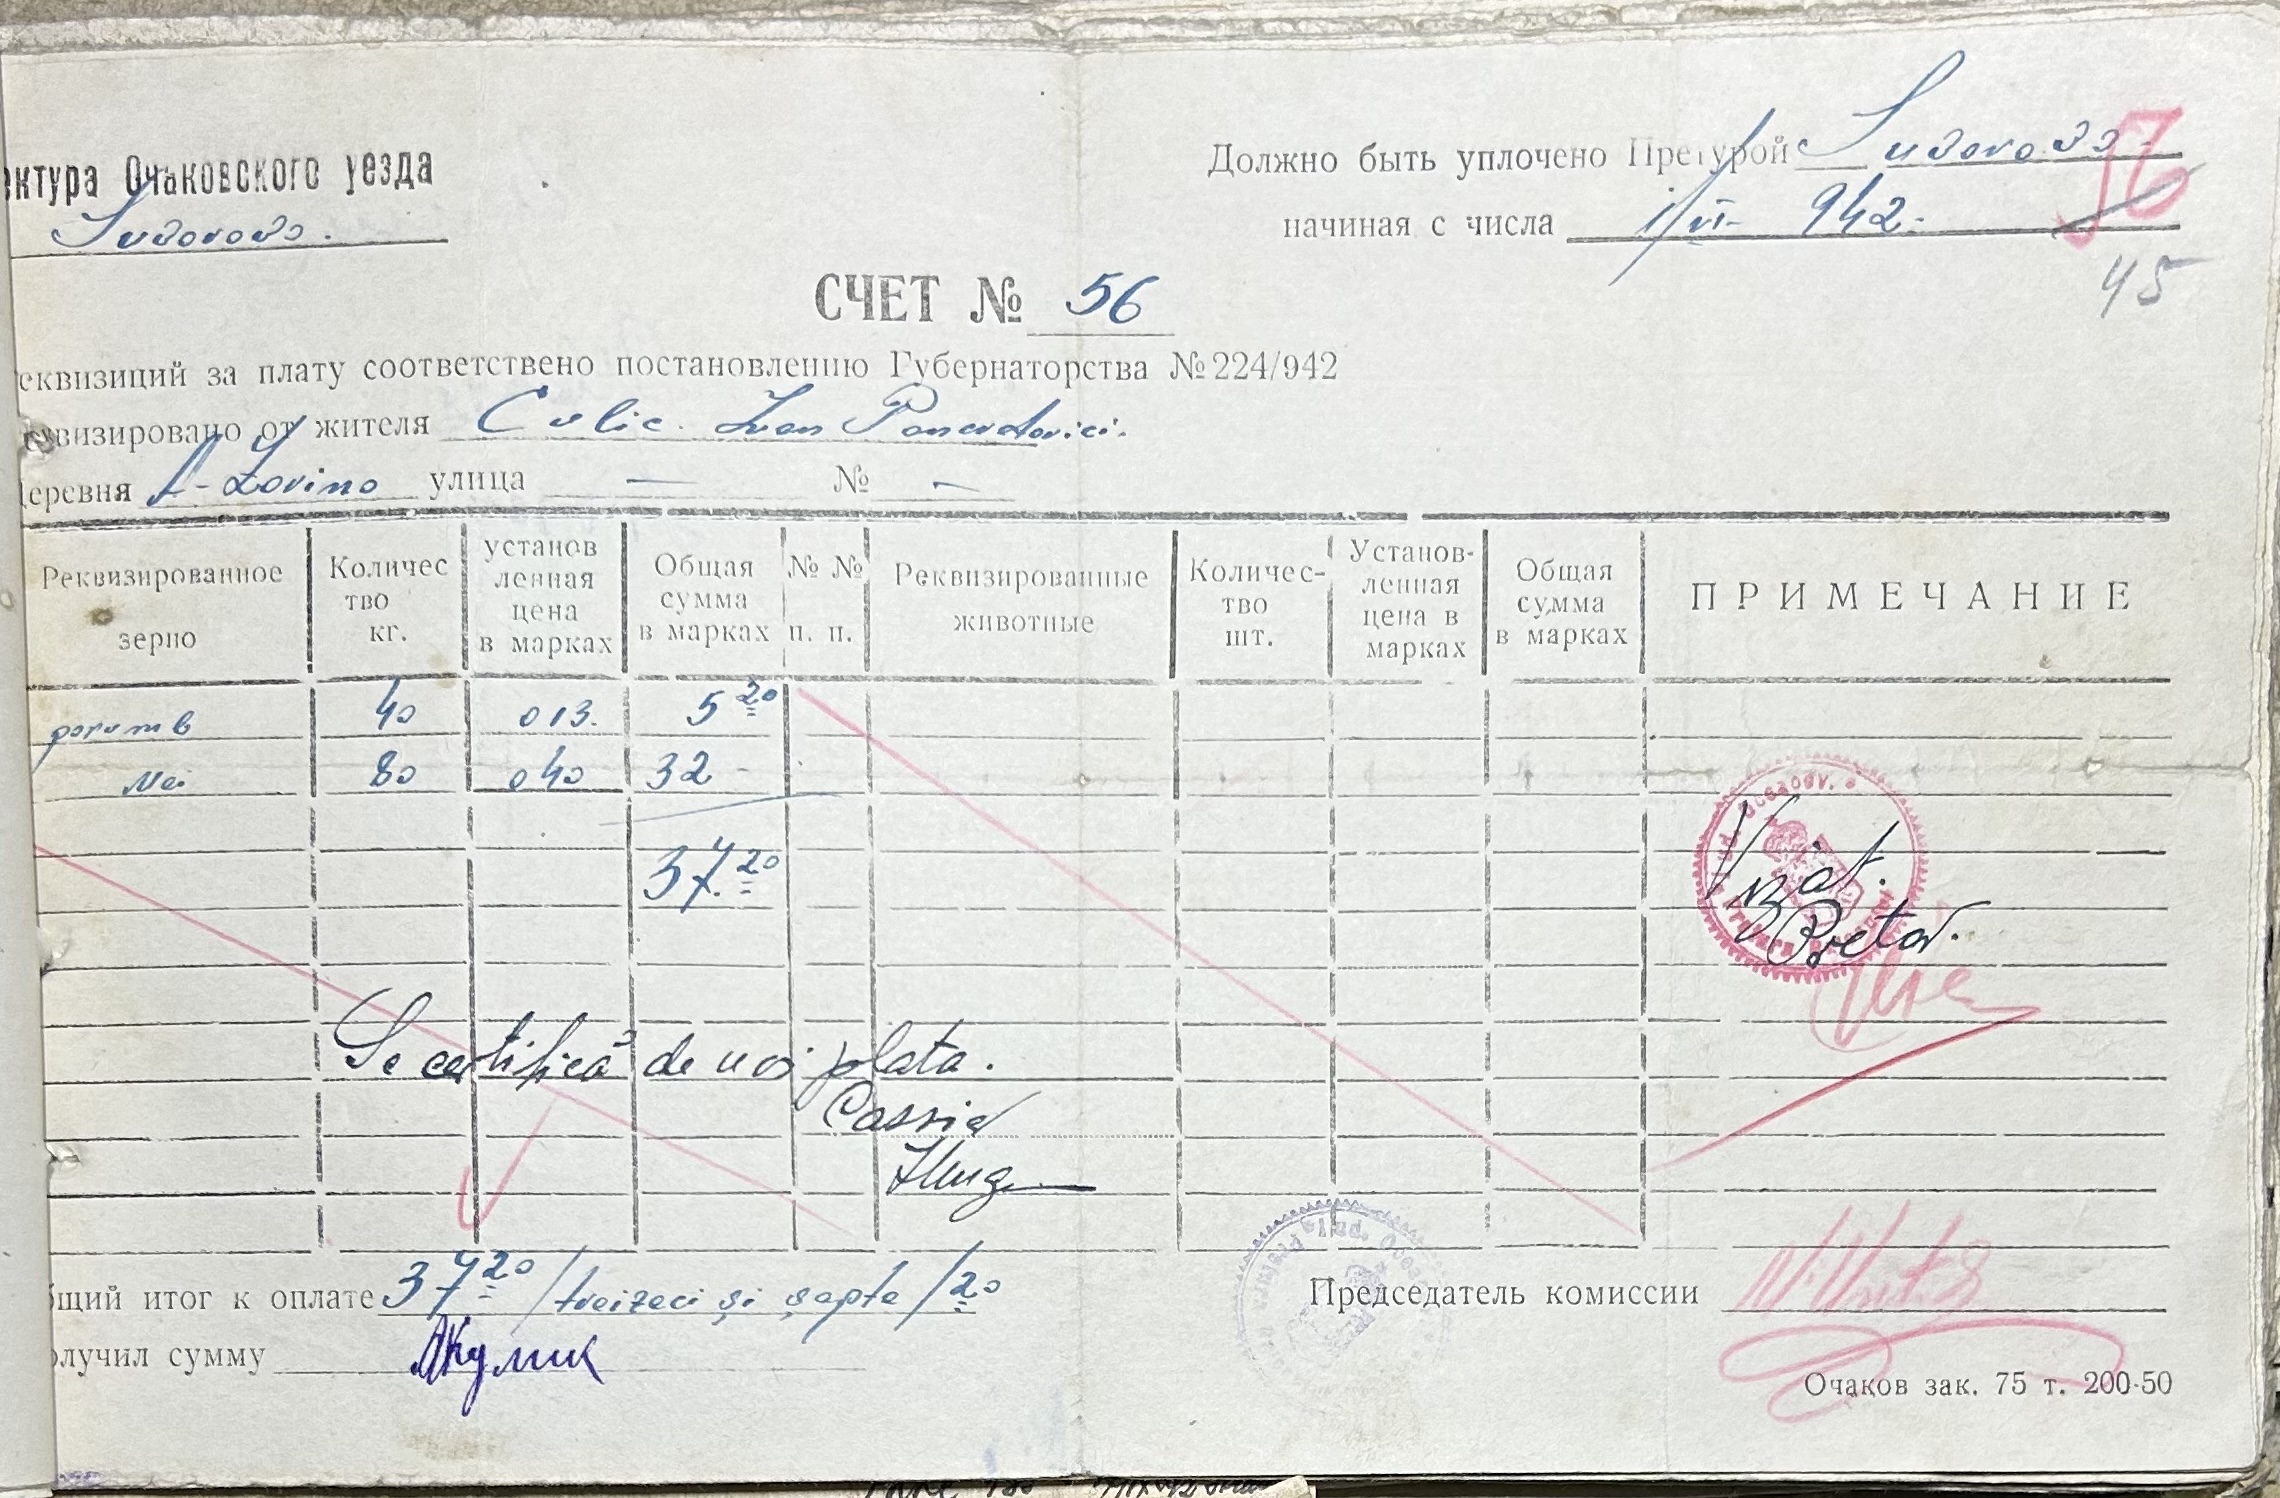 ектура Очаковского уезда
Suvorovo.
Должно быть уплочено Претурой Suvorovo
начиная с числа 1/VI- 942.-
56
45
СЧЕТ № 56
еквизиций за плату соответствено постановлению Губернаторства № 224/942
квизировано от жителя Culic Ivan
еревня улица — № —
Реквизированное зерно
Количес тво кг.
установ ленная цена в марках
Общая сумма в марках
№ № п. п.
Реквизированные животные
Количес- тво шт.
Установ- ленная цена в марках
Общая сумма в марках
ПРИМЕЧАНИЕ
porumb 40 013. 5 20
Mei 80 040 32 -
37.20
Vizat.
Pretor.
Se certifică de noi plata.
Casier
бщий итог к оплате 37 20 /treizeci și șapte/20
Председатель комиссии
олучил сумму Якулик
Очаков зак. 75 т. 200-50